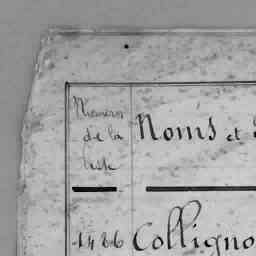 Numéros
de la
liste
Noms et
1486 Colligno